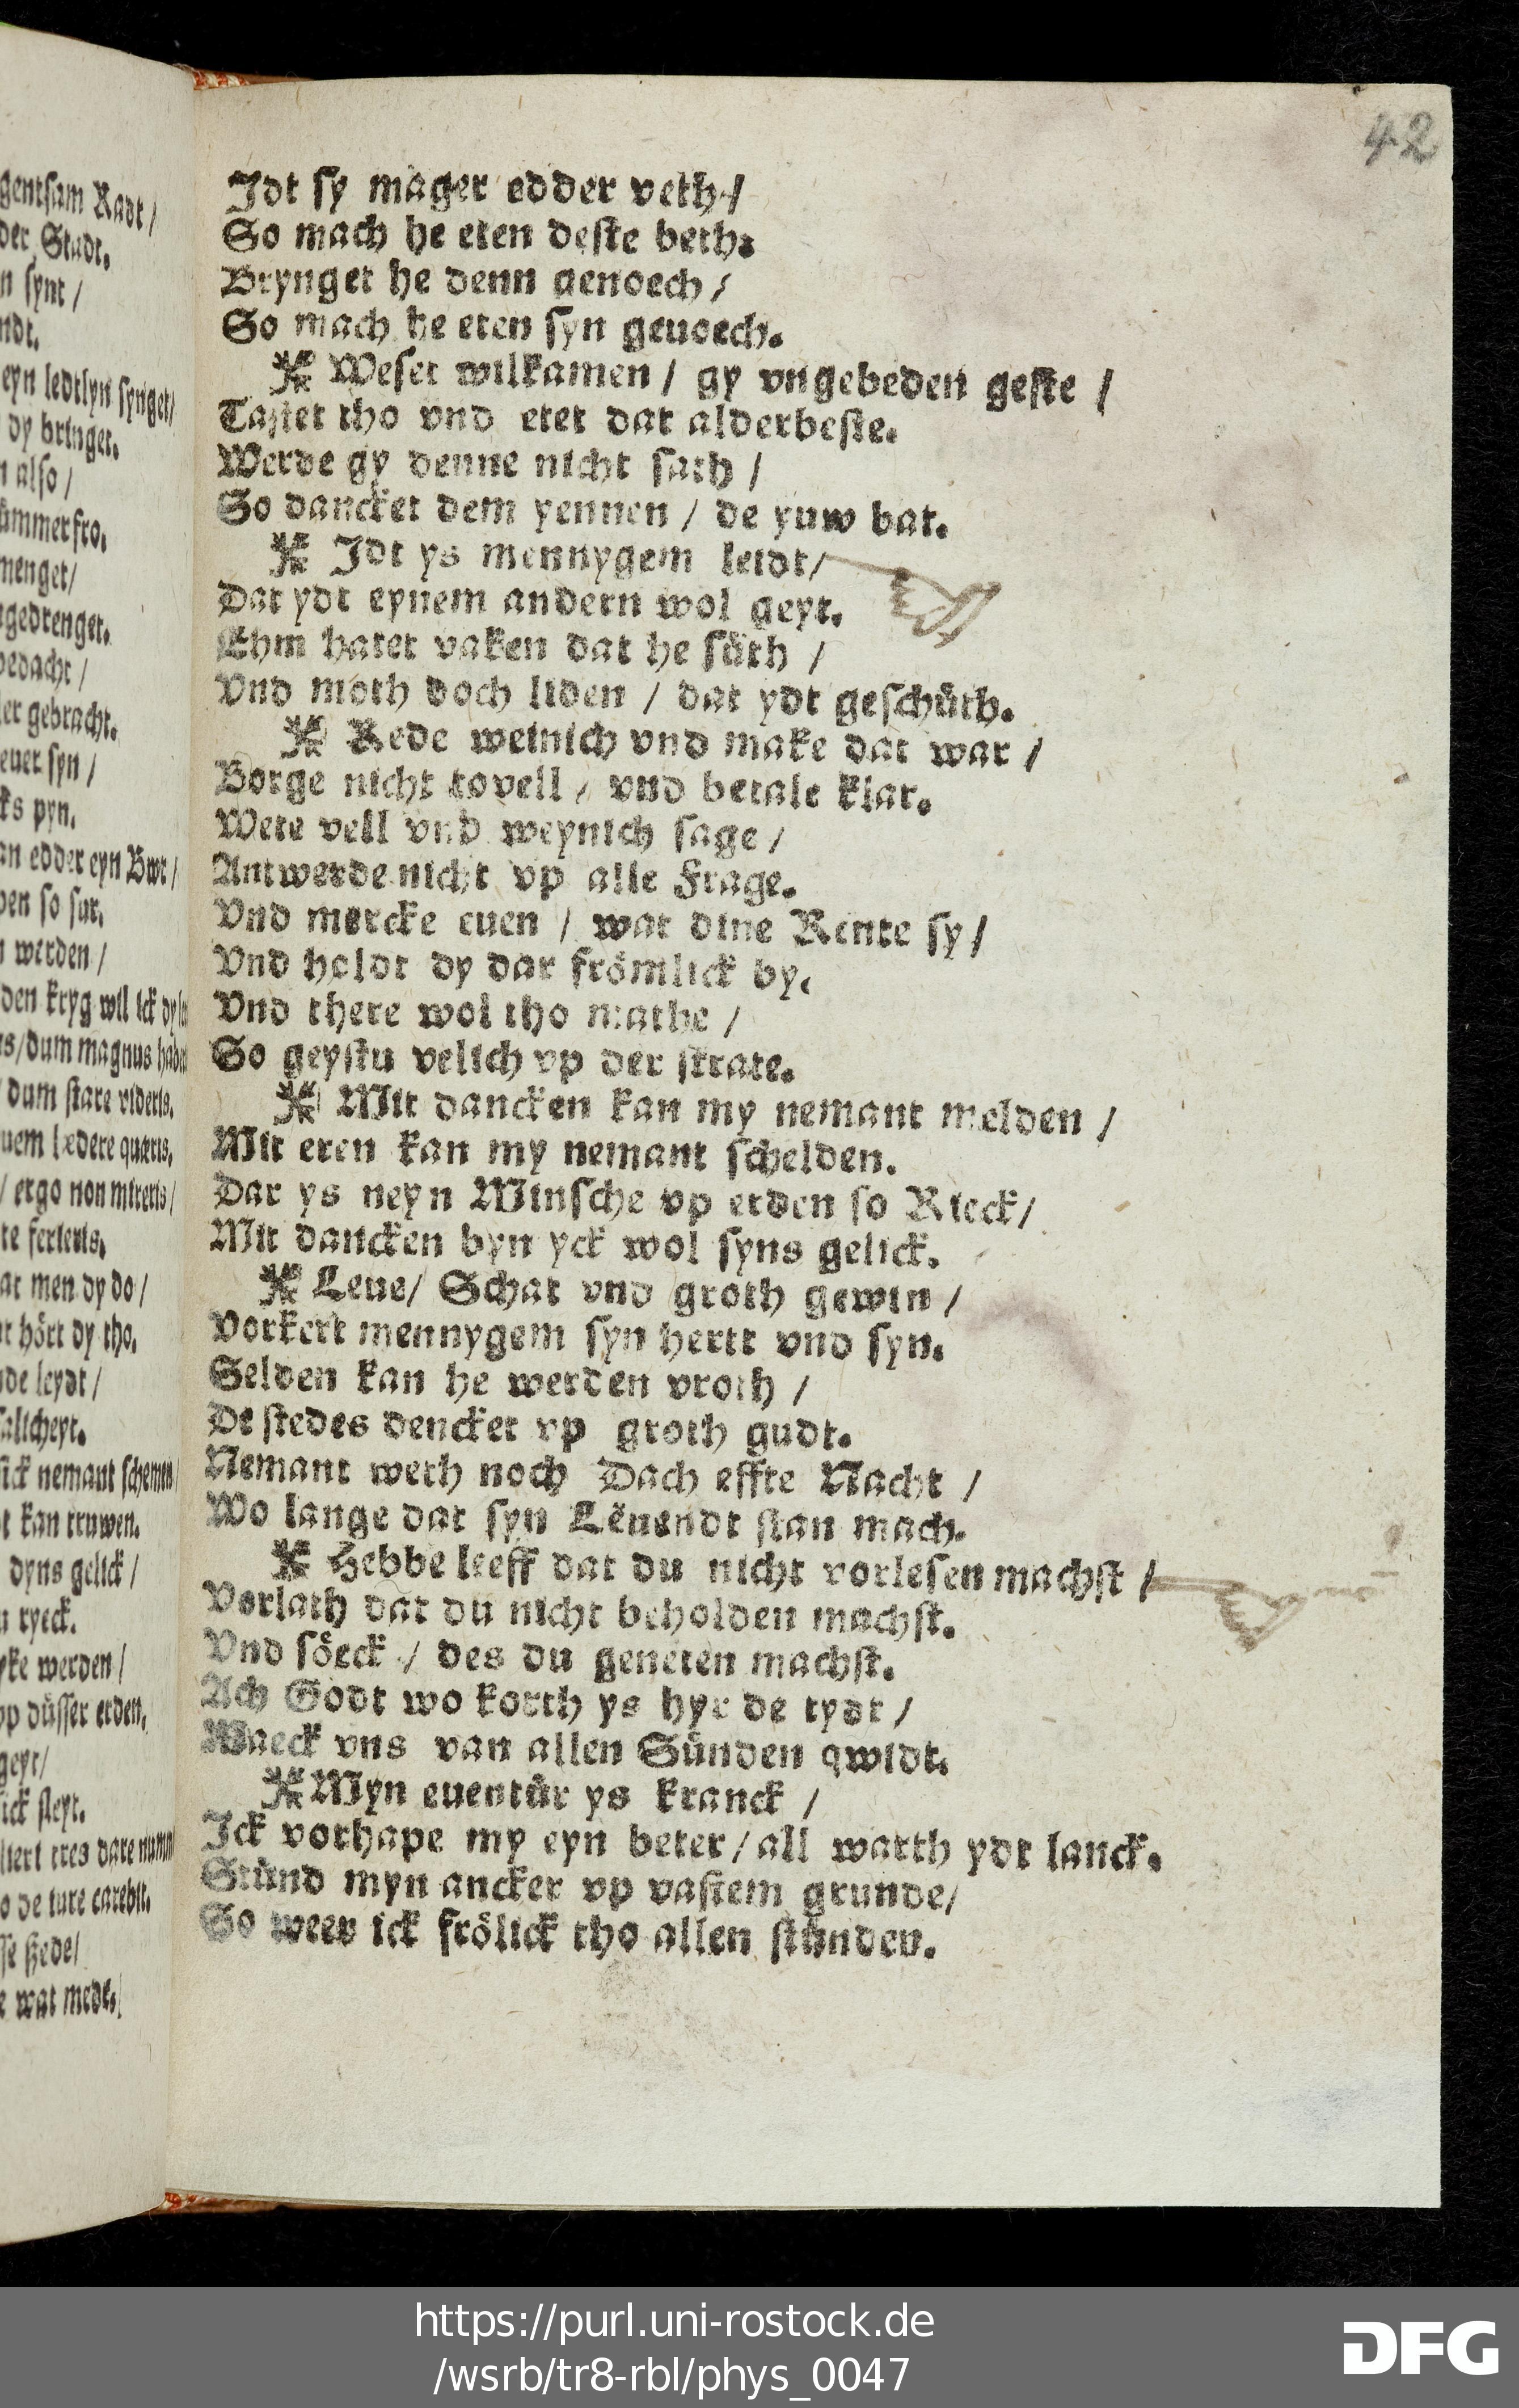 42
gentsam Radt /
der Stadt.
n synt /
ndt.
eyn ledtlyn synget/
dy bringet.
n also /
ümmerfro.
menget/
gedrenget.
bedacht /
er gebracht.
euer syn /
ks pyn.
an edder eyn Bwr /
pen so sur.
n werden /
den kryg wil ick dy
s/dum magnus habe
dum stare videris.
uem lædere quæris,
/ ergo non mireris /
te ferieris.
at men dy do /
t hört dy tho.
de leydt /
salicheyt.
sick nemant schemen
t kan truwen.
dyns gelick /
ryeck.
yke werden /
vp düsser erden.
geyt/
ick steyt.
tres dare num
de ture carebit.
se hede/
wat mede.
Idt sy mager edder veth /
So mach he eten deste beth.
Brynget he denn genoech /
So mach he eten syn genoech.
Weset wilkamen / gy vngebeden geste /
Tastet tho vnd etet dat alderbeste.
Werde gy denne nicht sath /
So dancket dem yennen / de yuw bat.
Idt ys mennygem leidt/
Dat ydt eynem andern wol geyt.
Ehm hatet vaken dat he süth /
Vnd moth doch liden / dat ydt geschüth.
Rede weinich vnd make dat war /
Borge nicht tovell / vnd betale klar.
Wete vell vnd weynich sage /
Antwerde nicht vp alle Frage.
Vnd mercke euen / wat dine Rente sy /
Vnd holdt dy dar frömlick by.
Vnd there wol tho mathe /
So geystu velich vp der strate.
Mit dancken kan my nemant melden /
Mit eren kan my nemant schelden.
Dar ys neyn Minsche vp erden so Rieck/
Mit dancken byn yck wol syns gelick.
Leue/ Schat vnd groth gewin /
Vorkert mennygem syn hertt vnd syn.
Selden kan he werden vroth /
De stedes dencket vp groth gudt.
Nemant weth noch Dach effte Nacht /
Wo lange dat syn Lëuendt stan mach.
Hebbe leeff dat du nicht vorlesen machst /
Vorlath dat du nicht beholden machst.
Vnd söeck / des du geneten machst.
Ach Godt wo korth ys hyr de tydt /
Maeck vns van allen Sünden qwidt.
Myn euentür ys kranck /
Ick vorhape my eyn beter / all warth ydt lanck.
Stünd myn ancker vp vastem grunde/
So weer ick frölick tho allen stünden.
https://purl.uni-rostock.de
/wsrb/tr8-rbl/phys_0047
DFG